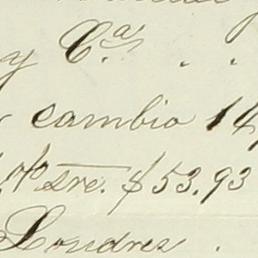 y C.ª . .
cambio 14
% sre. $53.93
Londres .